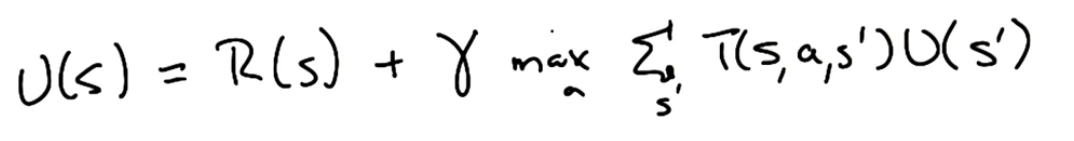 U(s) = R(s) + γ max_a Σ_s' T(s,a,s')U(s')